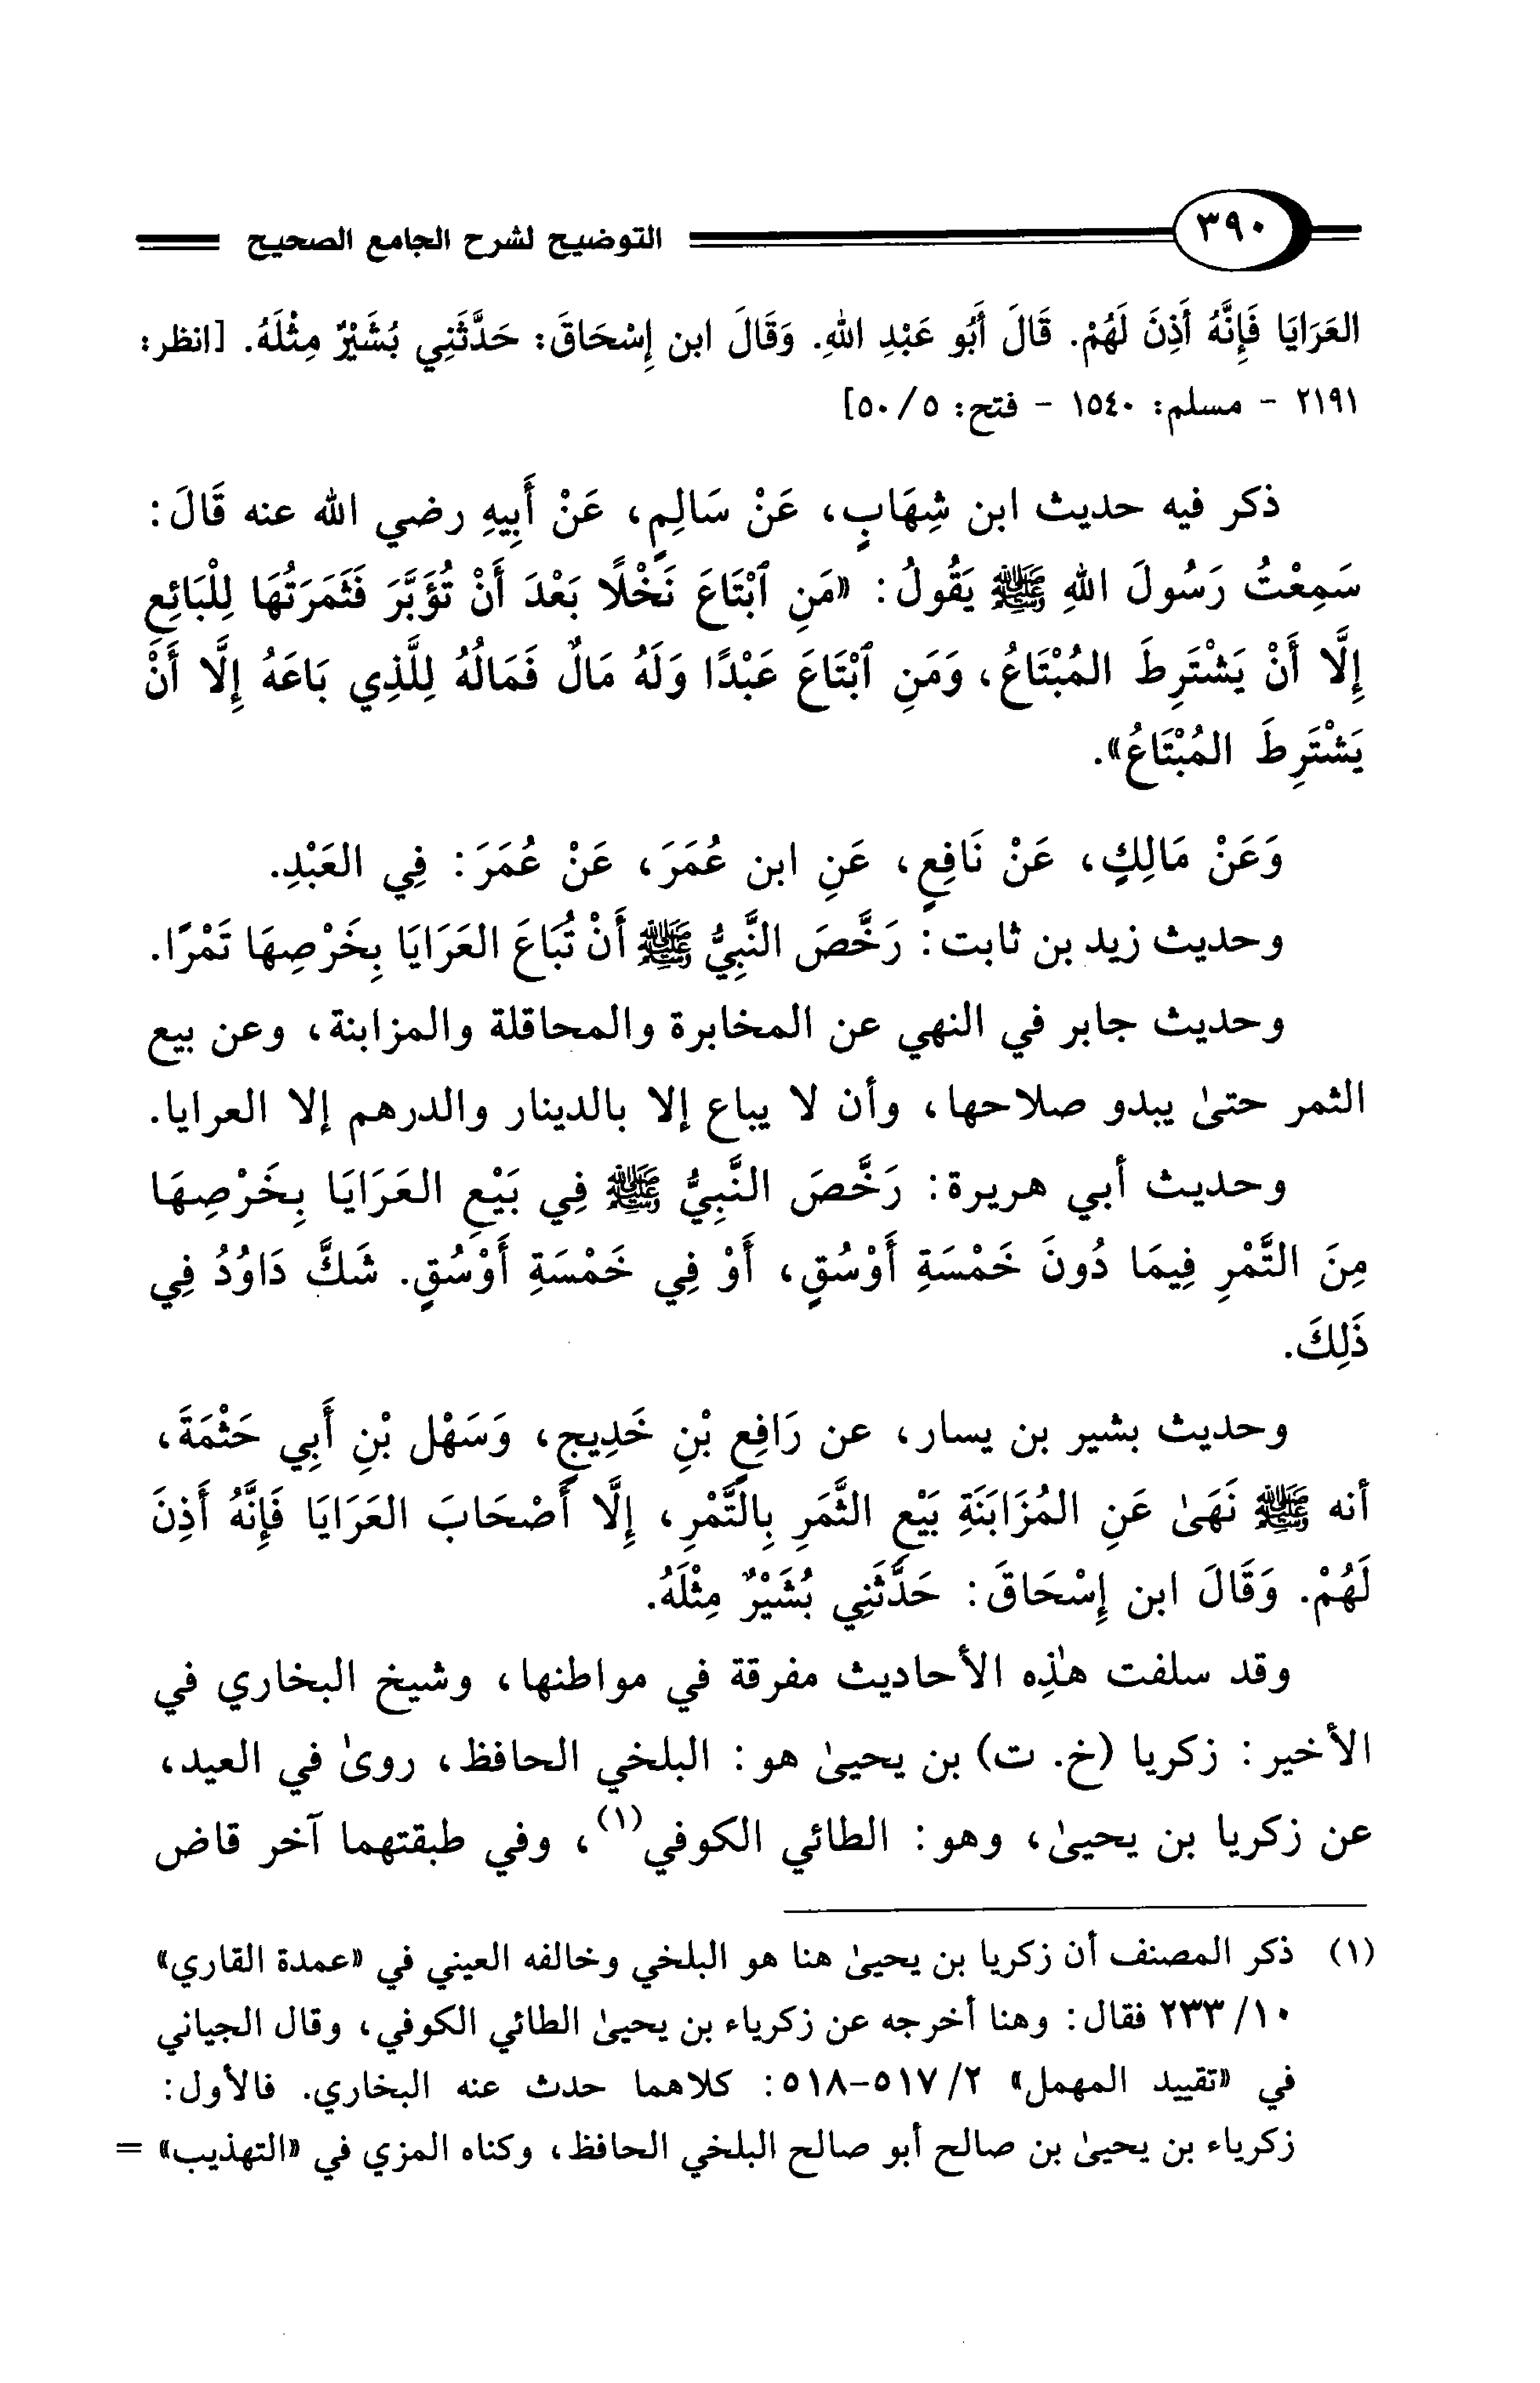 ٣٩٠ التوضيح لشرح الجامع الصحيح
العَرَايَا فَإِنَّهُ أَذِنَ لَهُمْ. قَالَ أَبُو عَبْدِ اللهِ. وَقَالَ ابن إِسْحَاقَ: حَدَّثَنِي بُشَيْرٌ مِثْلَهُ. [انظر:
٢١٩١ - مسلم: ١٥٤٠ - فتح: ٥/ ٥٠]
ذكر فيه حديث ابن شِهَابٍ، عَنْ سَالِمٍ، عَنْ أَبِيهِ رضي الله عنه قَالَ:
سَمِعْتُ رَسُولَ اللهِ ﷺ يَقُولُ: «مَنِ ٱبْتَاعَ نَخْلًا بَعْدَ أَنْ تُؤَبَّرَ فَثَمَرَتُهَا لِلْبَائِعِ
إِلَّا أَنْ يَشْتَرِطَ المُبْتَاعُ، وَمَنِ ٱبْتَاعَ عَبْدًا وَلَهُ مَالٌ فَمَالُهُ لِلَّذِي بَاعَهُ إِلَّا أَنْ
يَشْتَرِطَ المُبْتَاعُ».
وَعَنْ مَالِكٍ، عَنْ نَافِعٍ، عَنِ ابن عُمَرَ، عَنْ عُمَرَ: فِي العَبْدِ.
وحديث زيد بن ثابت: رَخَّصَ النَّبِيُّ ﷺ أَنْ تُبَاعَ العَرَايَا بِخَرْصِهَا تَمْرًا.
وحديث جابر في النهي عن المخابرة والمحاقلة والمزابنة، وعن بيع
الثمر حتىٰ يبدو صلاحها، وأن لا يباع إلا بالدينار والدرهم إلا العرايا.
وحديث أبي هريرة: رَخَّصَ النَّبِيُّ ﷺ فِي بَيْعِ العَرَايَا بِخَرْصِهَا
مِنَ التَّمْرِ فِيمَا دُونَ خَمْسَةِ أَوْسُقٍ، أَوْ فِي خَمْسَةِ أَوْسُقٍ. شَكَّ دَاوُدُ فِي
ذَلِكَ.
وحديث بشير بن يسار، عن رَافِعِ بْنِ خَدِيجٍ، وَسَهْل بْنِ أَبِي حَثْمَةَ،
أنه ﷺ نَهَىٰ عَنِ المُزَابَنَةِ بَيْعِ الثَّمَرِ بِالتَّمْرِ، إِلَّا أَصْحَابَ العَرَايَا فَإِنَّهُ أَذِنَ
لَهُمْ. وَقَالَ ابن إِسْحَاقَ: حَدَّثَنِي بُشَيْرٌ مِثْلَهُ.
وقد سلفت هٰذِه الأحاديث مفرقة في مواطنها، وشيخ البخاري في
الأخير: زكريا (خ. ت) بن يحيىٰ هو: البلخي الحافظ، روىٰ في العيد،
عن زكريا بن يحيىٰ، وهو: الطائي الكوفي(١)، وفي طبقتهما آخر قاض
(١) ذكر المصنف أن زكريا بن يحيىٰ هنا هو البلخي وخالفه العيني في «عمدة القاري»
١٠/ ٢٣٣ فقال: وهنا أخرجه عن زكرياء بن يحيىٰ الطائي الكوفي، وقال الجياني
في «تقييد المهمل» ٢/ ٥١٧-٥١٨: كلاهما حدث عنه البخاري. فالأول:
زكرياء بن يحيىٰ بن صالح أبو صالح البلخي الحافظ، وكناه المزي في «التهذيب» =